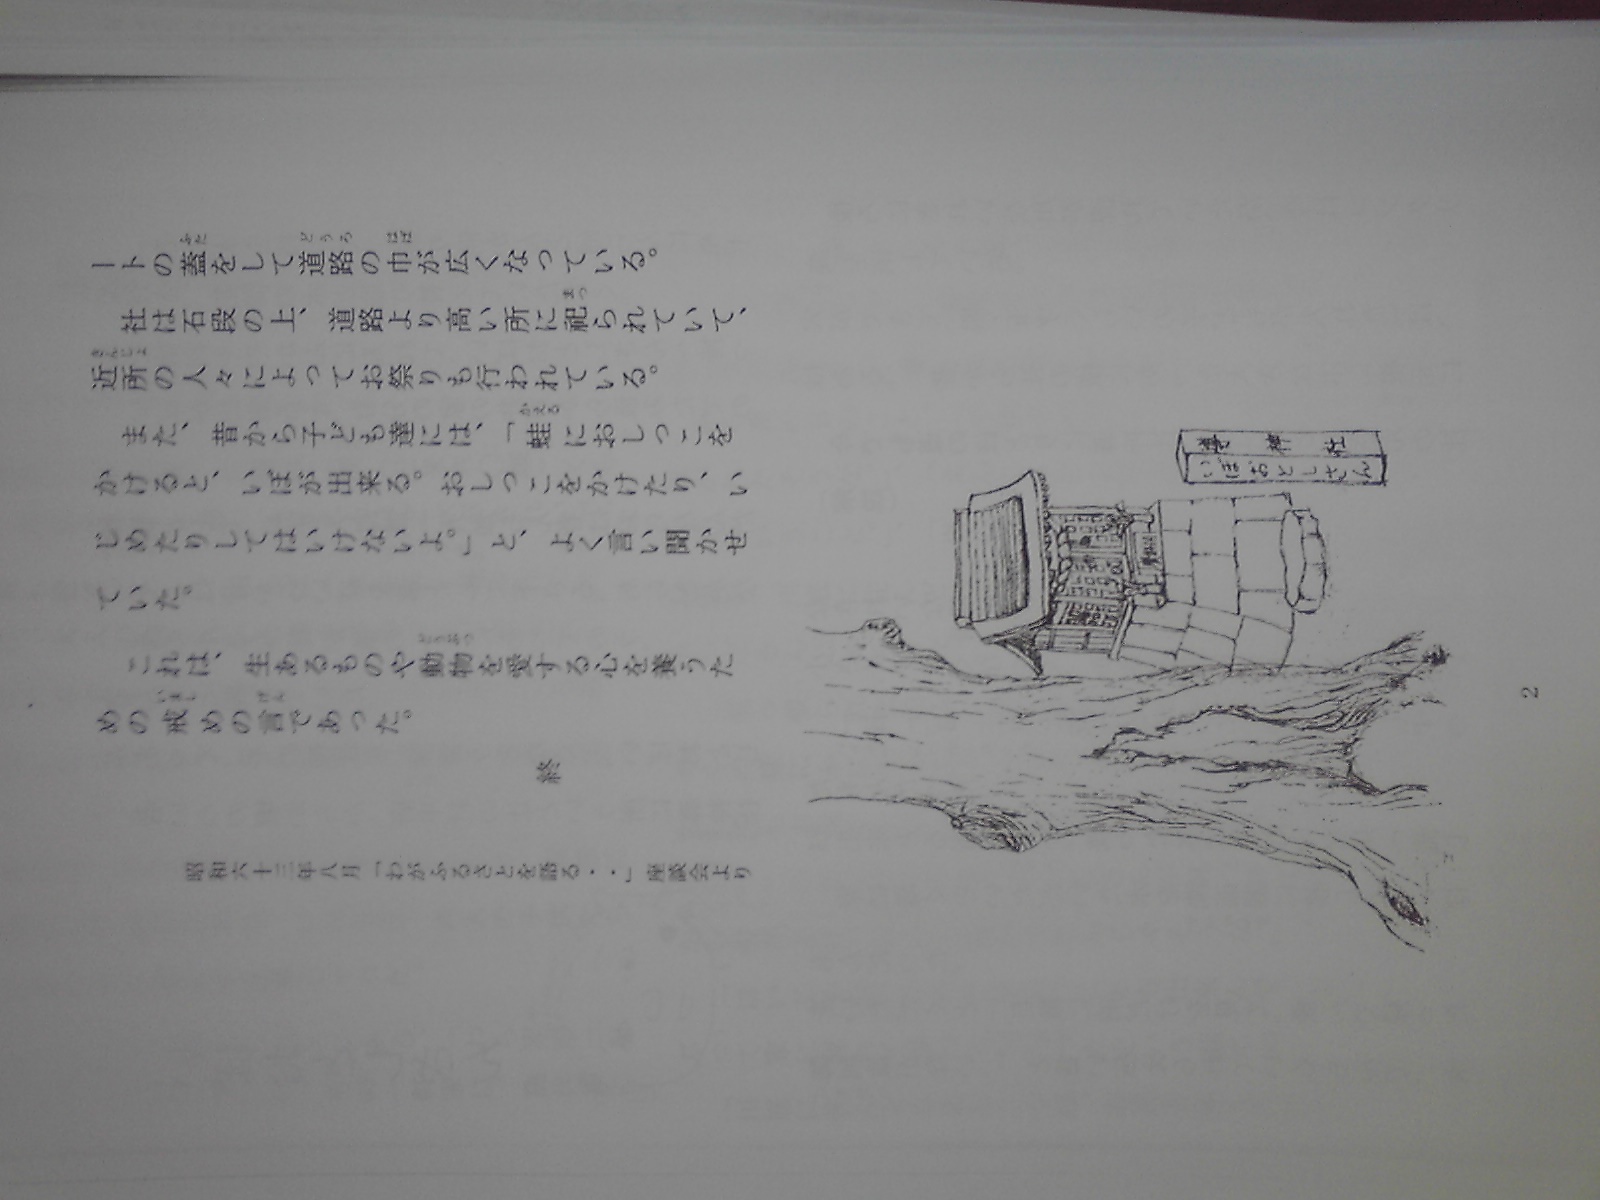 ふた どうろ はば
ートの蓋をして道路の巾が広くなっている。
まつ
社は石段の上、道路より高い所に祀られていて、
きんじょ
近所の人々によってお祭りも行われている。
かえる
また、昔から子ども達には、「蛙におしっこを
かけると、いぼが出来る。おしっこをかけたり、い
じめたりしてはいけないよ。」と、よく言い聞かせ
ていた。
どうぶつ
これは、生あるものや動物を愛する心を養うた
いまし げん
めの戒めの言であった。
終
昭和六十三年八月「わがふるさとを語る・・」座談会より
神社
いぼおとしさん
2